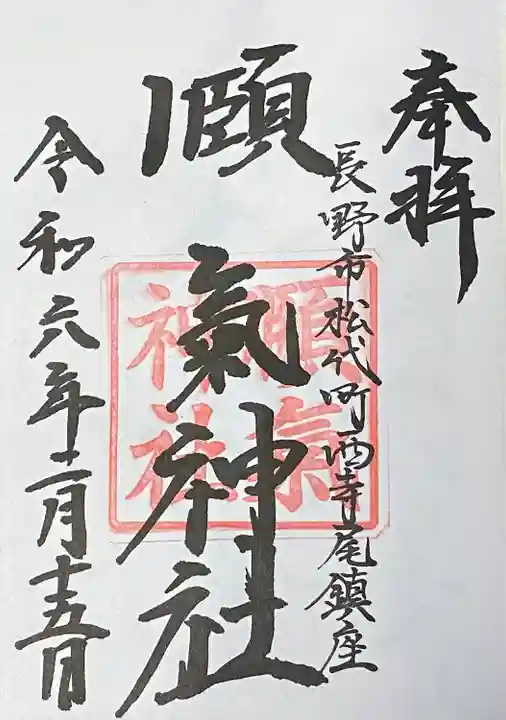 奉拝
長野市松代町西寺尾鎮座
頤氣神社
頤氣
神社
令和六年十二月十五日